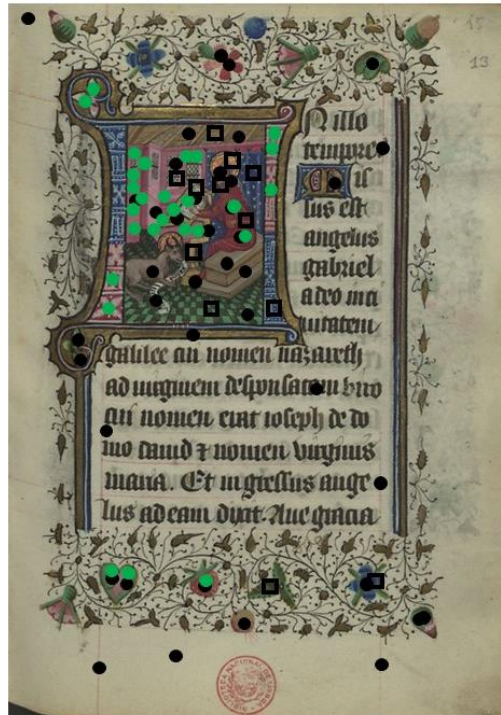 13
N illo
tempore
M is
sus est
angelus
gabriel
a deo in ci
uitatem
galilee cui nomen nazareth
ad uirginem desponsatam viro
cui nomen erat ioseph de do
mo dauid ⁊ nomen virginis
maria. Et ingressus ange
lus ad eam dixit. Aue gracia